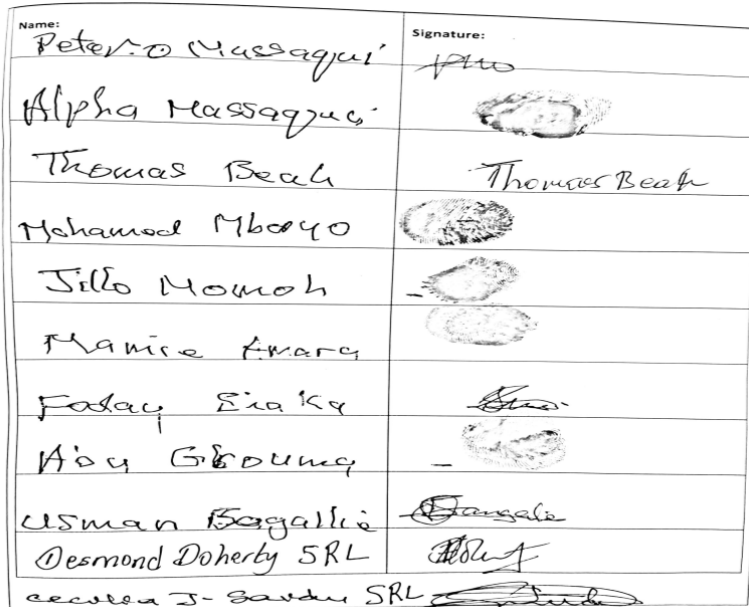 Name: Signature:
Peter.O Massaqui
Alpha Massaquoi
Thomas Beah Thomas Beah
Mohamed Mboyo
Jillo Momoh
Mamie Amara
Foday
Abu Gbouma
Usman Bagallie Bangalie
Desmond Doherty SRL
J- SRL